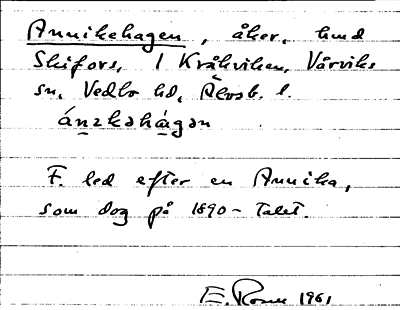 Annikehagen, åker, hmd
Skifors, 1 Kråkviken, Vårviks
sn, Vedbo hd, Älvsb. l.
ánəkəhàgən
F. led efter en Annika,
som dog på 1890-talet.
E. Rosen 1961